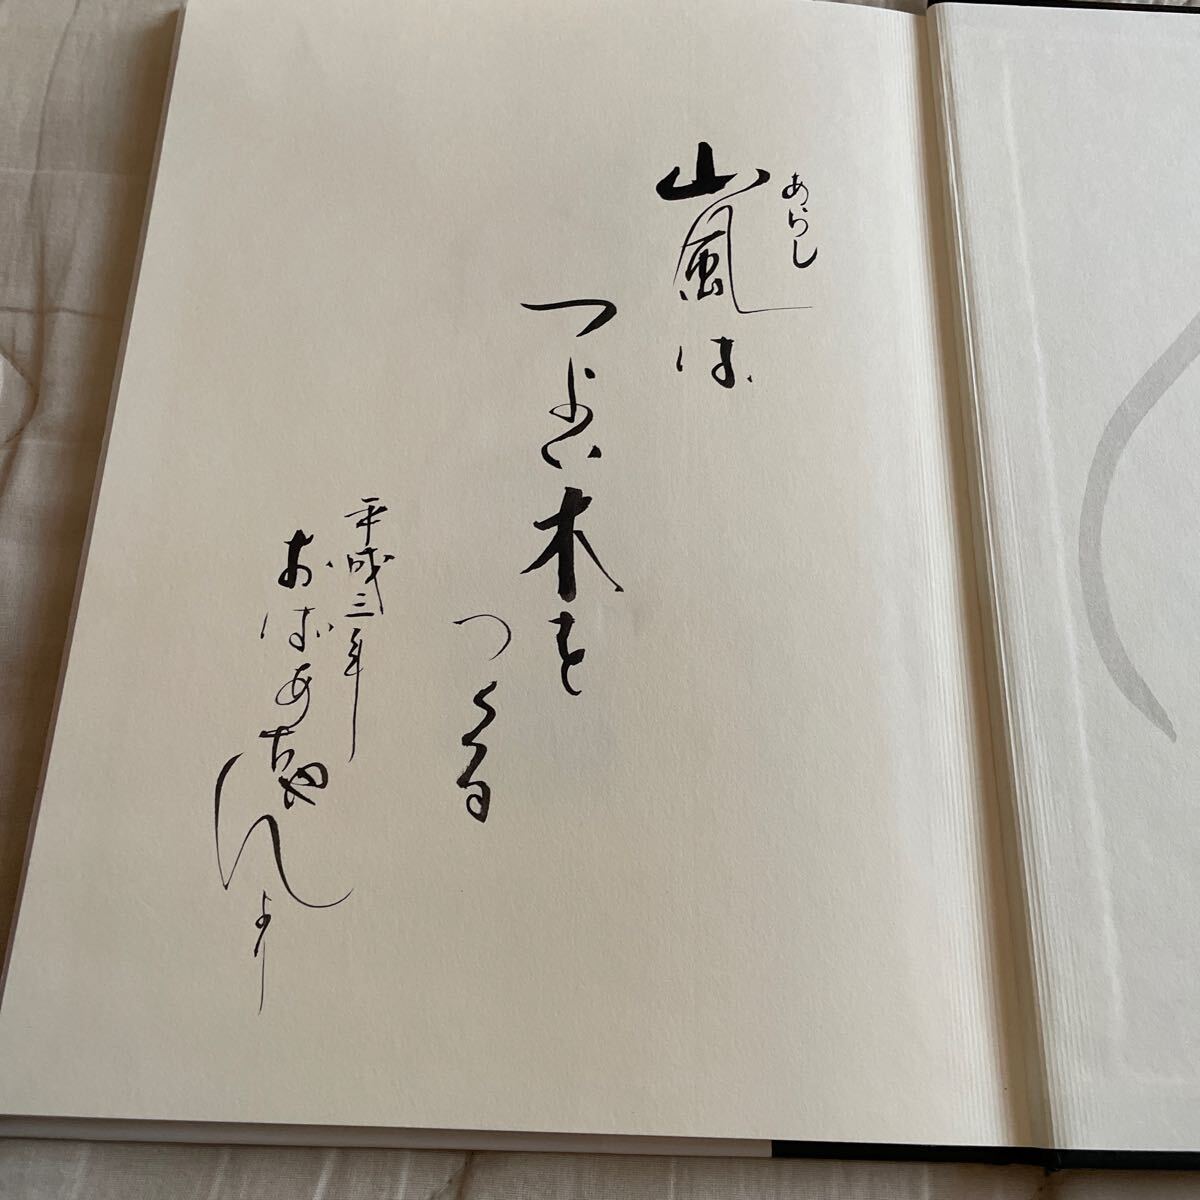 あらし
嵐は
つよい木を
つくる
平成三年
おばあちゃんより